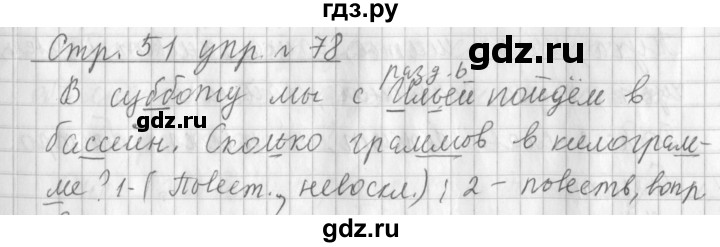 гдз.ру
Стр. 51 упр. № 78
gdz.ru
разд. ь
В субботу мы с Ильей пойдём в
бассейн. Сколько граммов в килограм-
ме? 1-( Повест., невоскл.) ; 2 - повеств, вопр
gdz.ru
gdz.ru